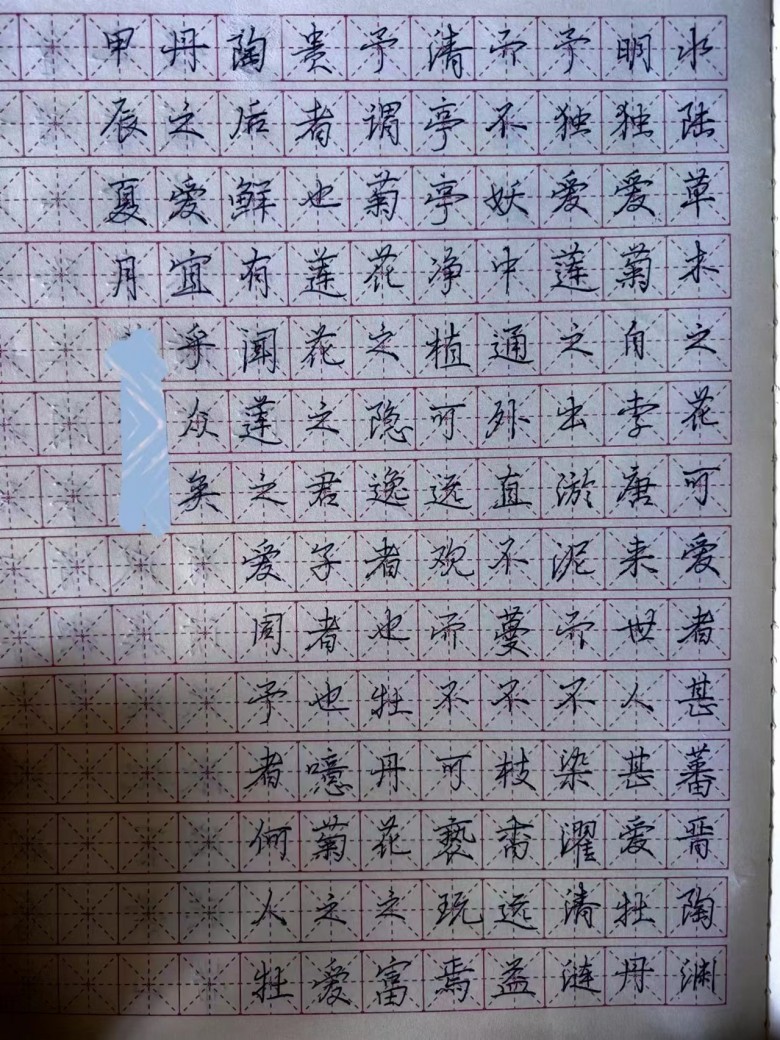 水陆草木之花可爱者甚蕃晋陶渊
明独爱菊自李唐来世人甚爱牡丹
予独爱莲之出淤泥而不染濯清涟
而不妖中通外直不蔓不枝香远益
清亭亭净植可远观而不可亵玩焉
予谓菊花之隐逸者也牡丹花之富
贵者也莲花之君子者也噫菊之爱
陶后鲜有闻莲之爱同予者何人牡
丹之爱宜乎众矣
甲辰夏月